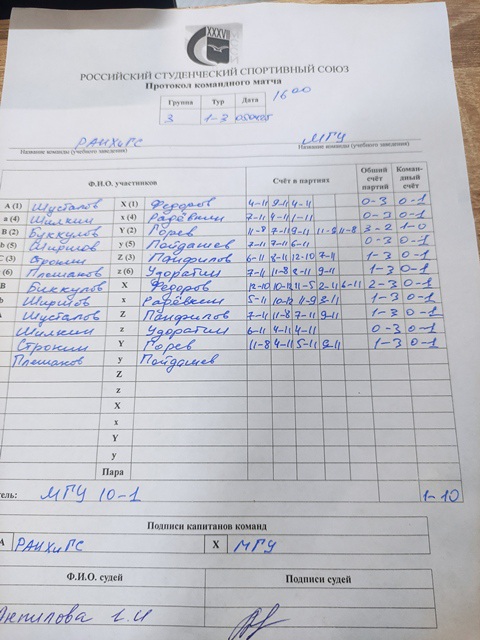 XXXVII
РОССИЙСКИЙ СТУДЕНЧЕСКИЙ СПОРТИВНЫЙ СОЮЗ
Протокол командного матча
Группа Тур Дата 16 00
3 1-3 050425
РАНХиГС МГУ
Название команды (учебного заведения) Название команды (учебного заведения)
Ф.И.О. участников Счёт в партиях Общий счёт партий Командный счёт
A (1) Шусталов X (1) Федоров 4-11 9-11 4-11 0-3 0-1
a (4) Шилкин x (4) Радёвкин 7-11 4-11 1-11 0-3 0-1
B (2) Буккулов Y (2) Горев 11-8 7-11 9-11 11-9 11-8 3-2 1-0
b (5) Ширшов y (5) Пойдашев 7-11 7-11 6-11 0-3 0-1
C (3) Строкин Z (3) Панфилов 6-11 11-8 12-10 7-11 1-3 0-1
(6) Плешанов z (6) Удоратин 7-11 11-8 8-11 9-11 1-3 0-1
B Биккулов X Федоров 12-10 10-12 11-5 2-11 6-11 2-3 0-1
b Ширшов x Радёвкин 5-11 10-12 11-9 3-11 1-3 0-1
Шусталов Z Панфилов 7-11 11-8 7-11 9-11 1-3 0-1
Шилкин z Удоратин 6-11 4-11 4-11 0-3 0-1
Строкин Y Горев 11-8 4-11 5-11 9-11 1-3 0-1
Плешанов y Пойдашев
Z
z
X
x
Y
y
Пара
тель: МГУ 10-1 1-10
Подписи капитанов команд
A РАНХиГС X МГУ
Ф.И.О. судей Подписи судей